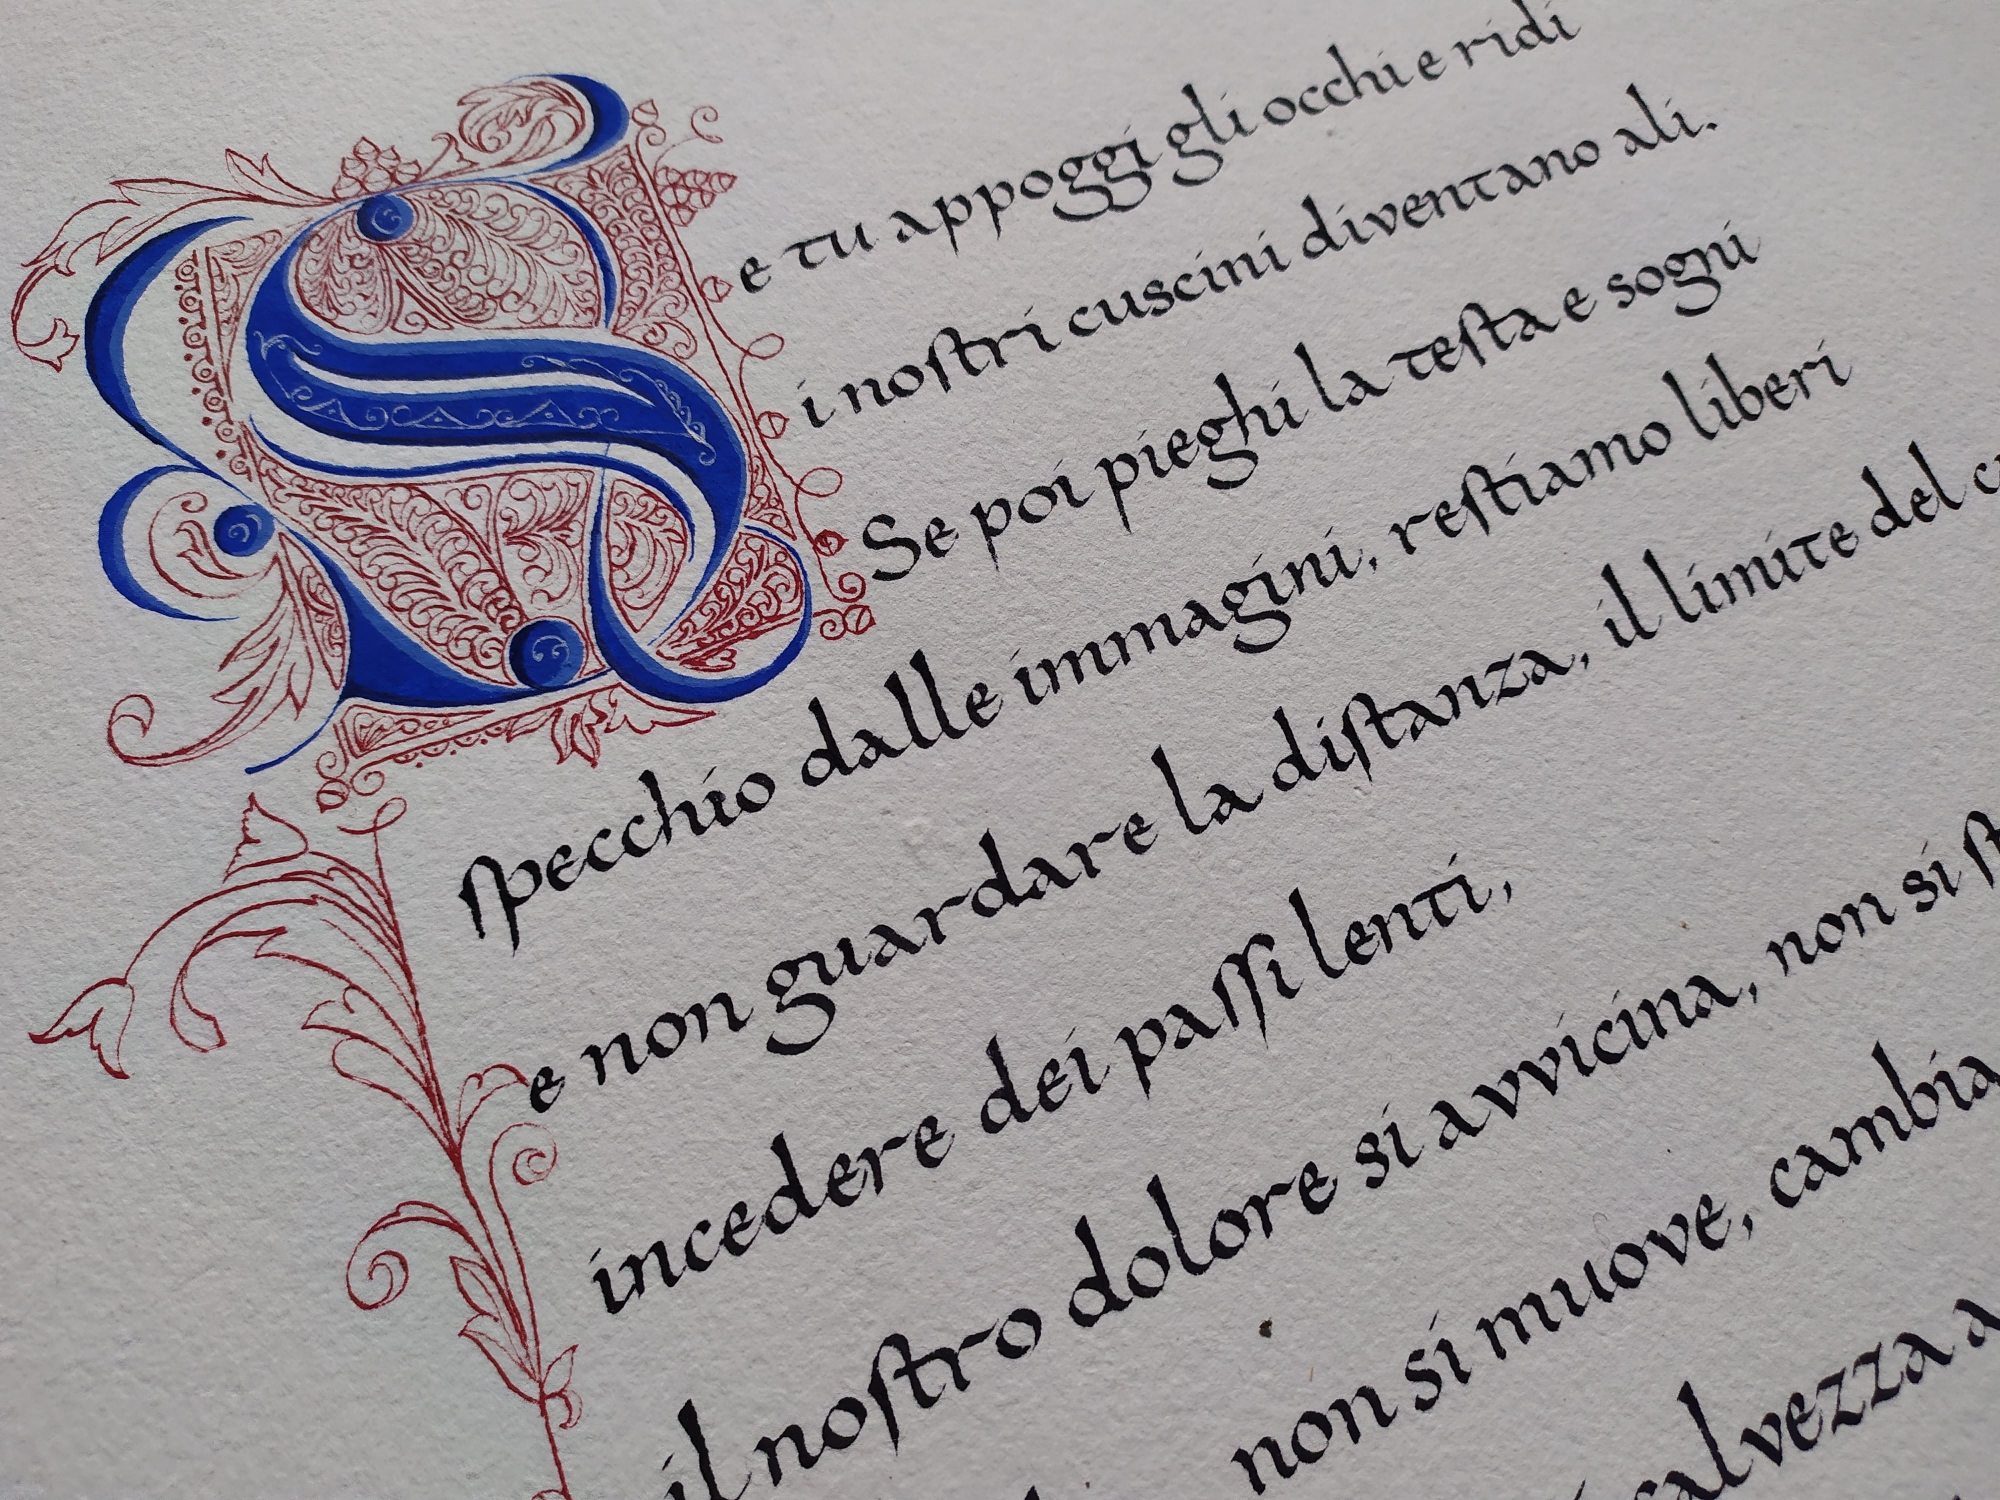 Se tu appoggi gli occhi e ridi
i noſtri cuscini diventano ali.
Se poi pieghi la teſta e sogni
ſpecchio dalle immagini, reſtiamo liberi
e non guardare la diſtanza, il limite del
incedere dei paſſi lenti,
il noſtro dolore si avvicina, non si
non si muove, cambia
salvezza a